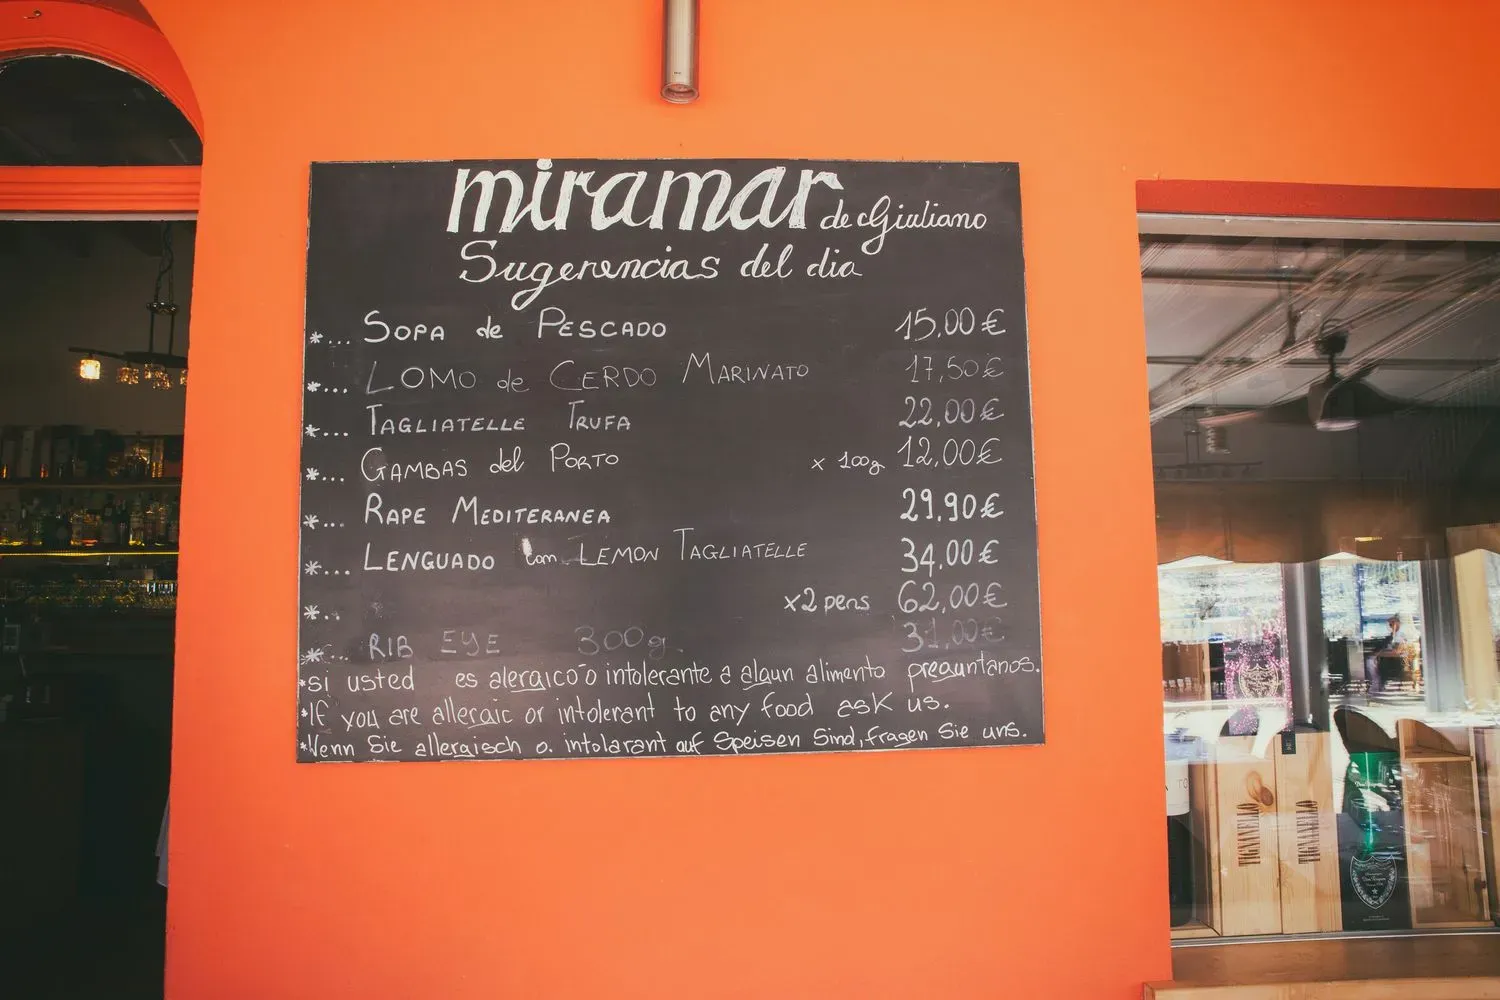 miramar de Giuliano
Sugerencias del dia
*... SOPA de PESCADO 15,00 €
*... LOMO de CERDO MARINATO 17,50 €
*... TAGLIATELLE TRUFA 22,00 €
*... GAMBAS del PORTO x 100g 12,00 €
*... RAPE MEDITERANEA 29,90 €
*... LENGUADO con LEMON TAGLIATELLE 34,00 €
*.. x2 pers 62,00 €
*... RIB EYE 300g. 31,00 €
*si usted es alergico o intolerante a algun alimento preguntanos.
*If you are allergic or intolerant to any food ask us.
*Wenn Sie allergisch o. intolarant auf Speisen Sind, fragen Sie uns.
TIGNANELLO
TIGNANELLO